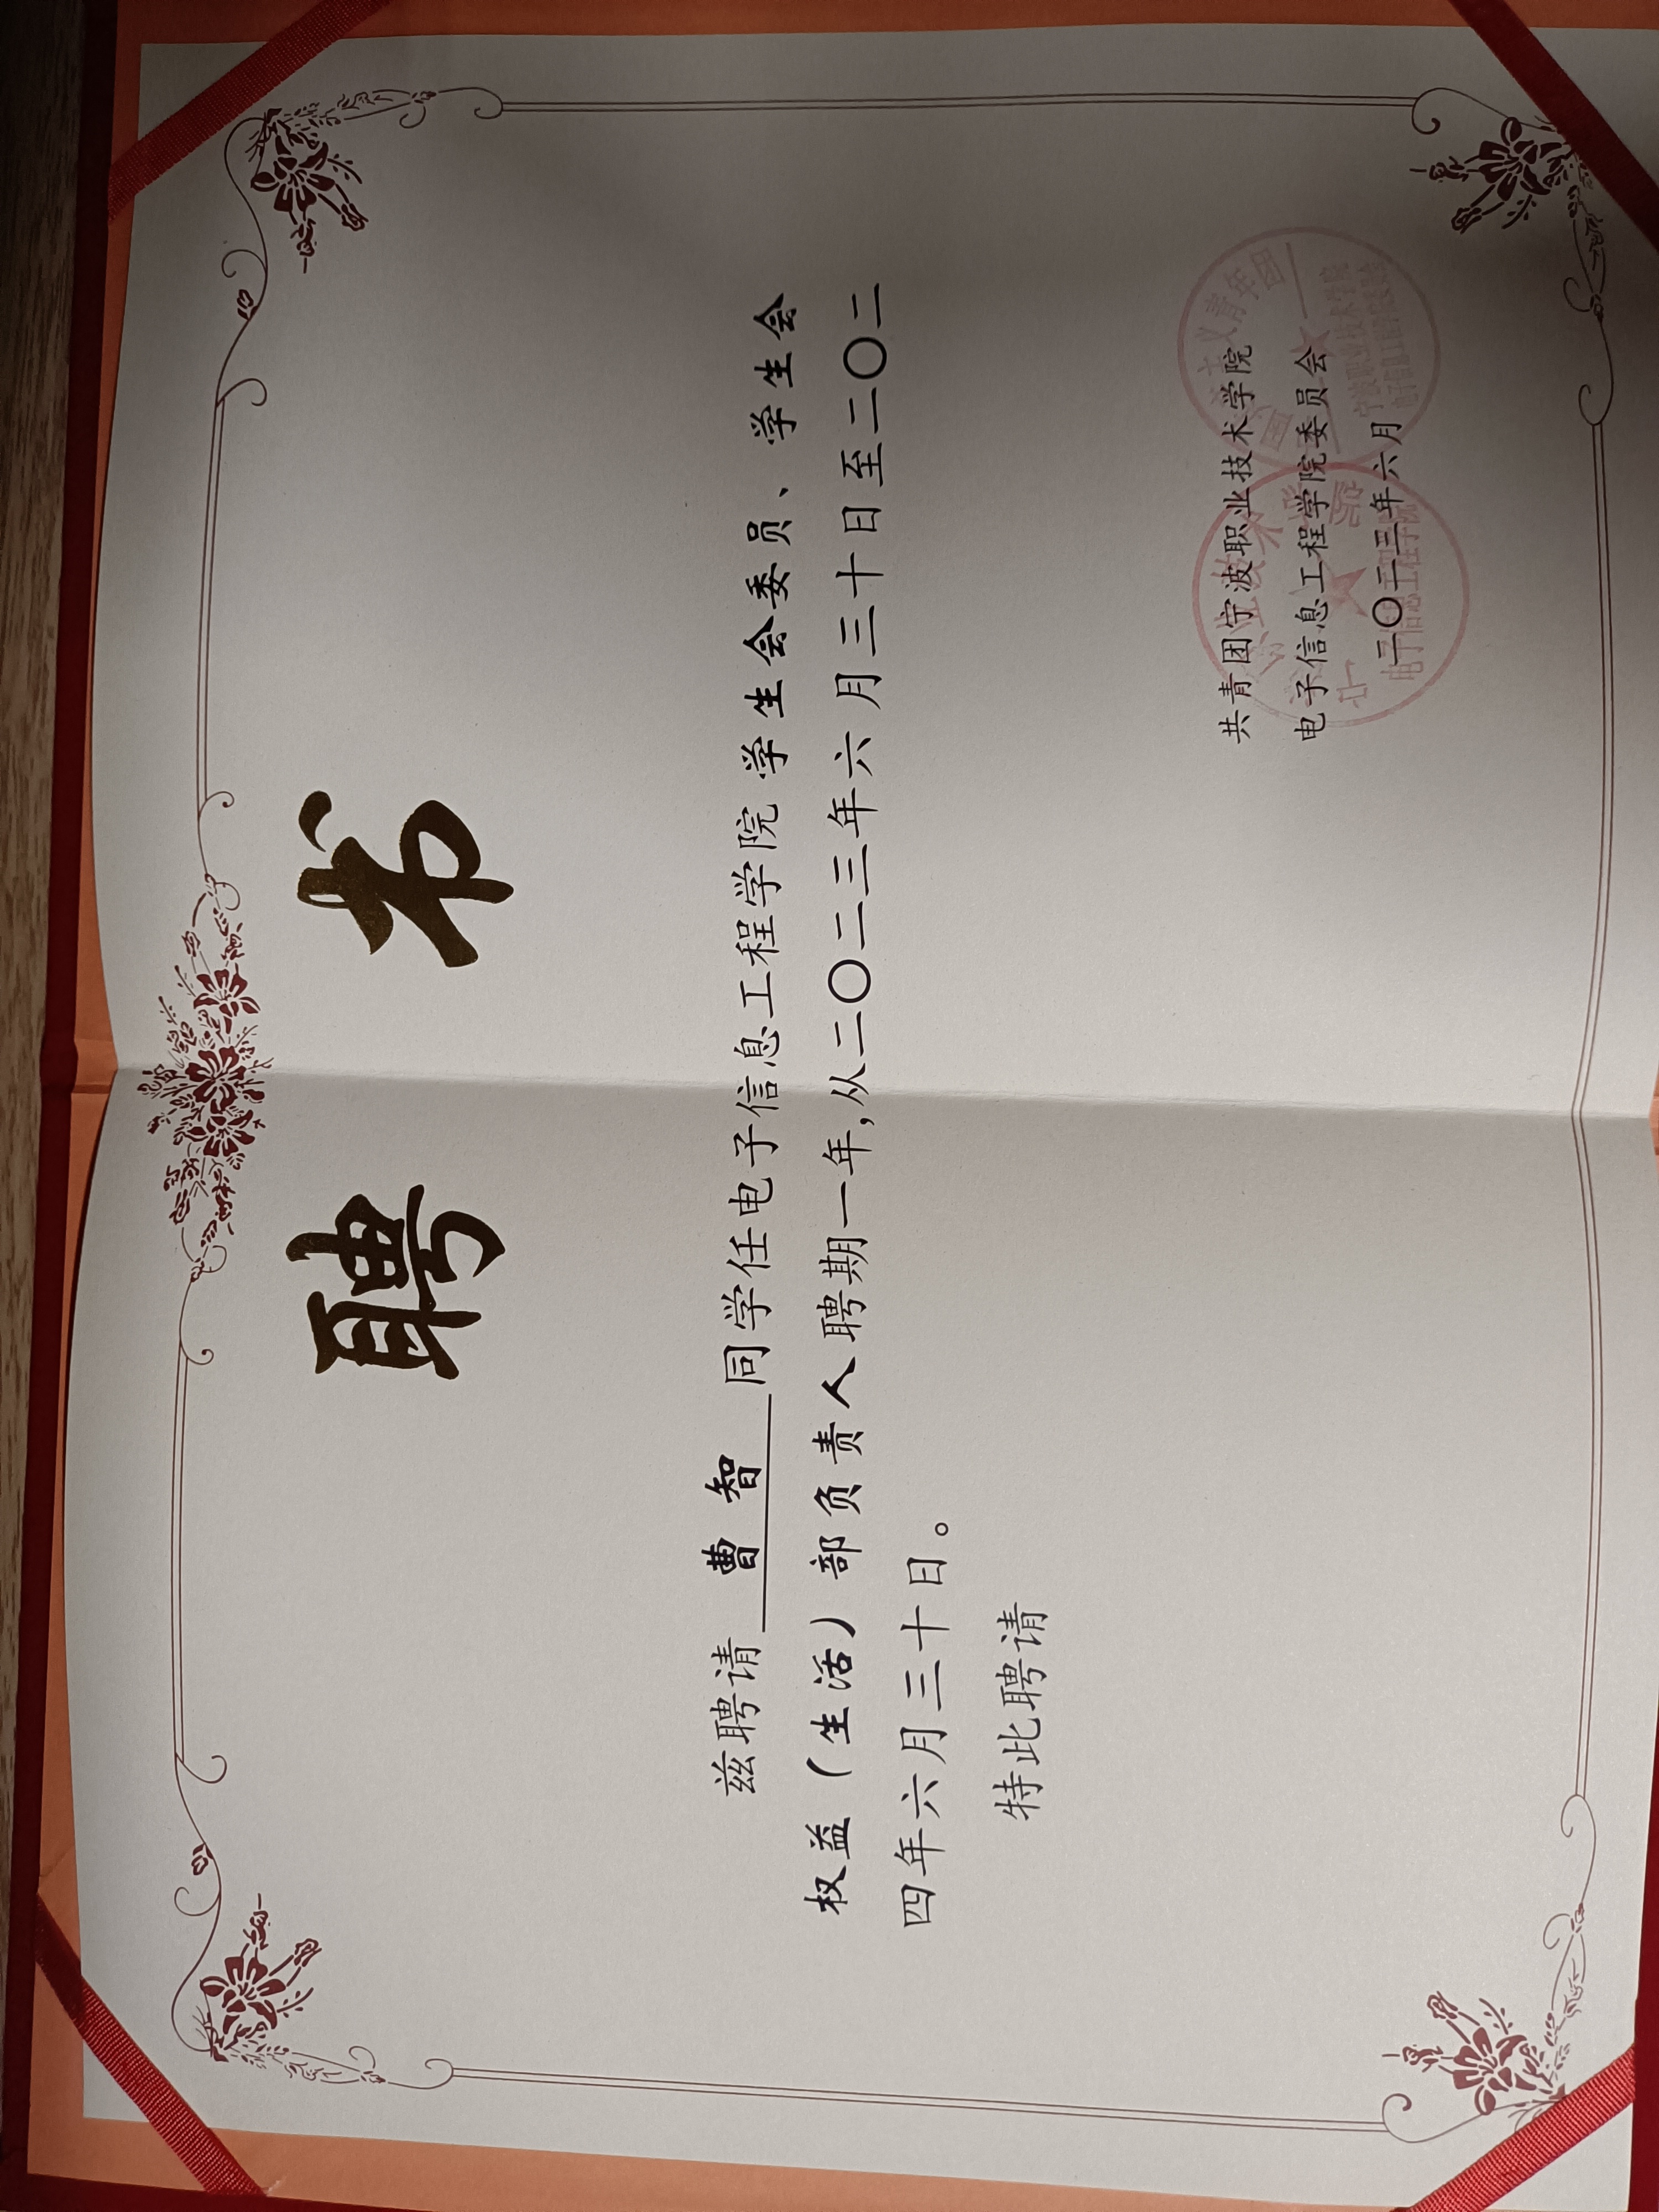 聘书
兹聘请 曹智 同学任电子信息工程学院学生会委员、学生会
权益（生活）部负责人聘期一年,从二〇二三年六月三十日至二〇二
四年六月三十日。
特此聘请
共青团宁波职业技术学院
电子信息工程学院委员会
二〇二三年六月
电子信息工程学院